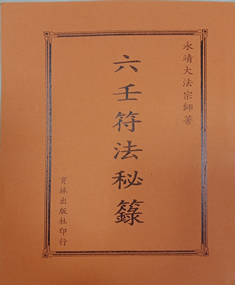 永靖大法宗師著
六壬符法秘籙
育林出版社印行